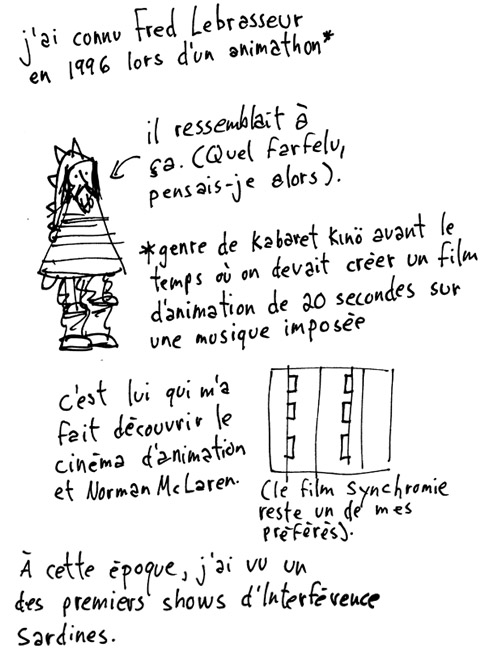 j'ai connu Fred Lebrasseur
en 1996 lors d'un animathon*
il ressemblait à
ça. (Quel farfelu,
pensais-je alors).
*genre de Kabaret Kinö avant le
temps où on devait créer un film
d'animation de 20 secondes sur
une musique imposée
c'est lui qui m'a
fait découvrir le
cinéma d'animation
et Norman McLaren.
(le film Synchromie
reste un de mes
préférés).
À cette époque, j'ai vu un
des premiers shows d'Interférence
Sardines.